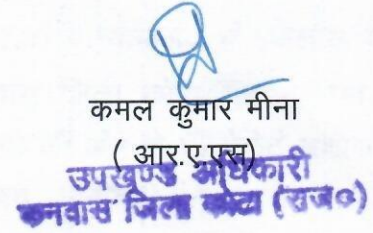 कमल कुमार मीना
( आर.ए.एस)
उपखण्ड अधिकारी
कनवास जिला कोटा (राज०)